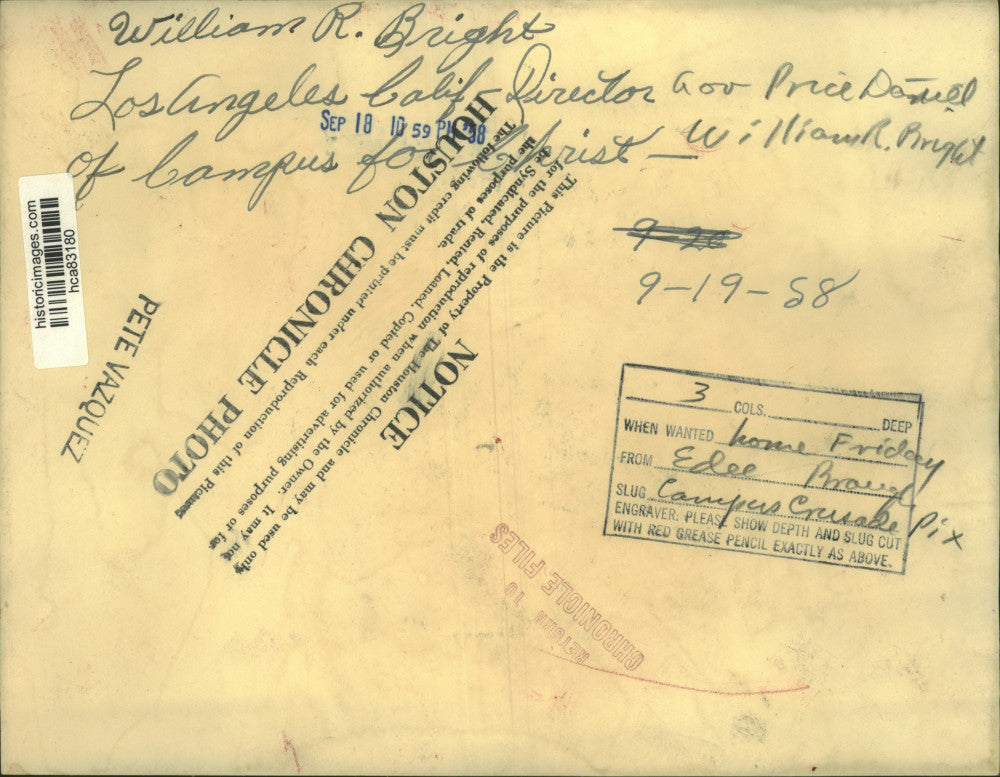 William R. Bright
Los Angeles Calif - Director
of Campus for Christ —
Gov Price Daniel
William R. Bright
SEP 18 10 59 PM '58
9-26
9-19-58
historicimages.com
hca83180
PETE VAZQUEZ
HOUSTON CHRONICLE PHOTO
The following credit must be printed under each Reproduction of this Picture
NOTICE
This Picture is the Property of The Houston Chronicle and may be used only
for the purposes of reproduction when authorized by the Owner. It may not
be Syndicated, Rented, Loaned, Copied or used for advertising purposes or for
the purposes of trade.
3 COLS. DEEP
WHEN WANTED home Friday
FROM Edee
SLUG Campus Crusade Pix
ENGRAVER: PLEASE SHOW DEPTH AND SLUG CUT
WITH RED GREASE PENCIL EXACTLY AS ABOVE.
RETURN TO
CHRONICLE FILES